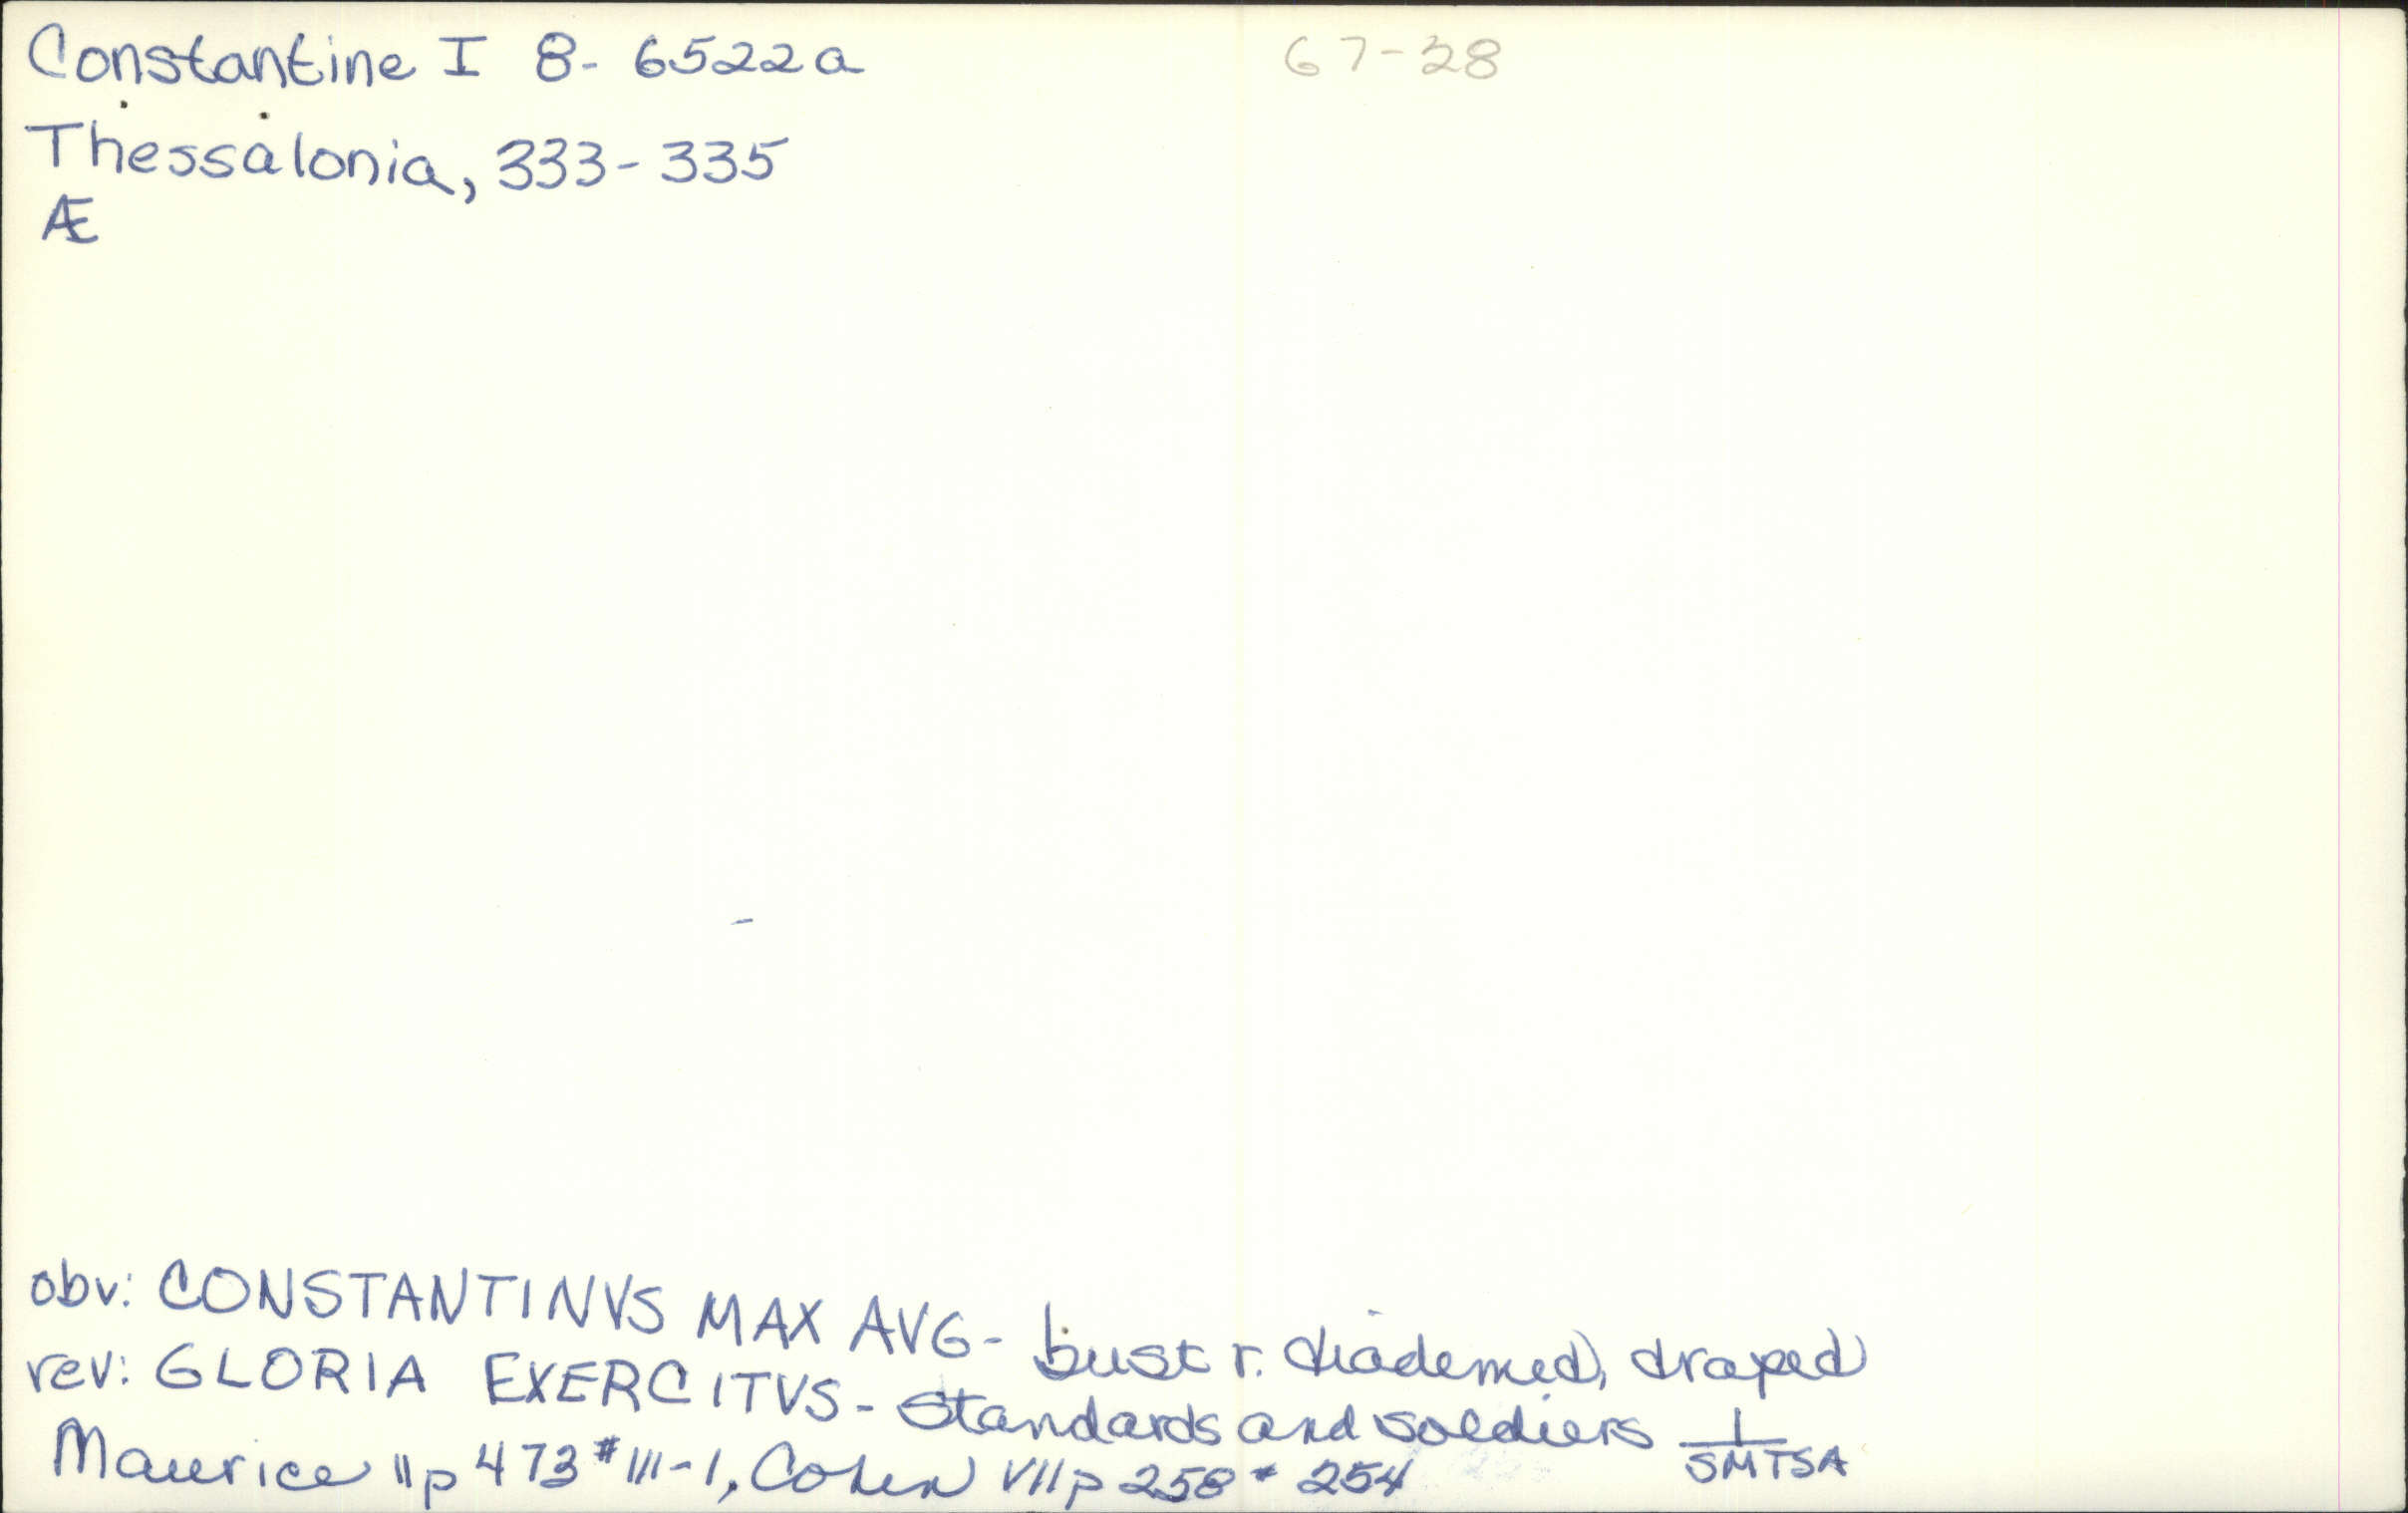 Constantine I 8-6522a 67-28
Thessalonia, 333-335
Æ
obv: CONSTANTINVS MAX AVG- bust r. diademed, draped
rev: GLORIA EXERCITVS- standards and soldiers 1/SMTSA
Maurice II p 473 # III-1, Cohen VII p 258 # 254